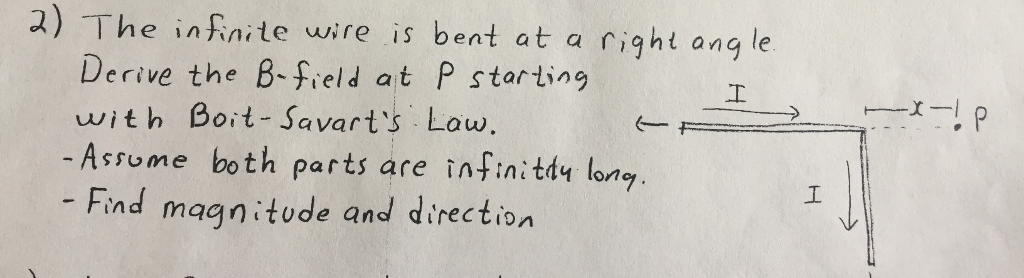 2) The infinite wire is bent at a right angle.
Derive the B-field at P starting
with Boit-Savart's Law.
- Assume both parts are infinitdy long.
- Find magnitude and direction
I
x
P
I